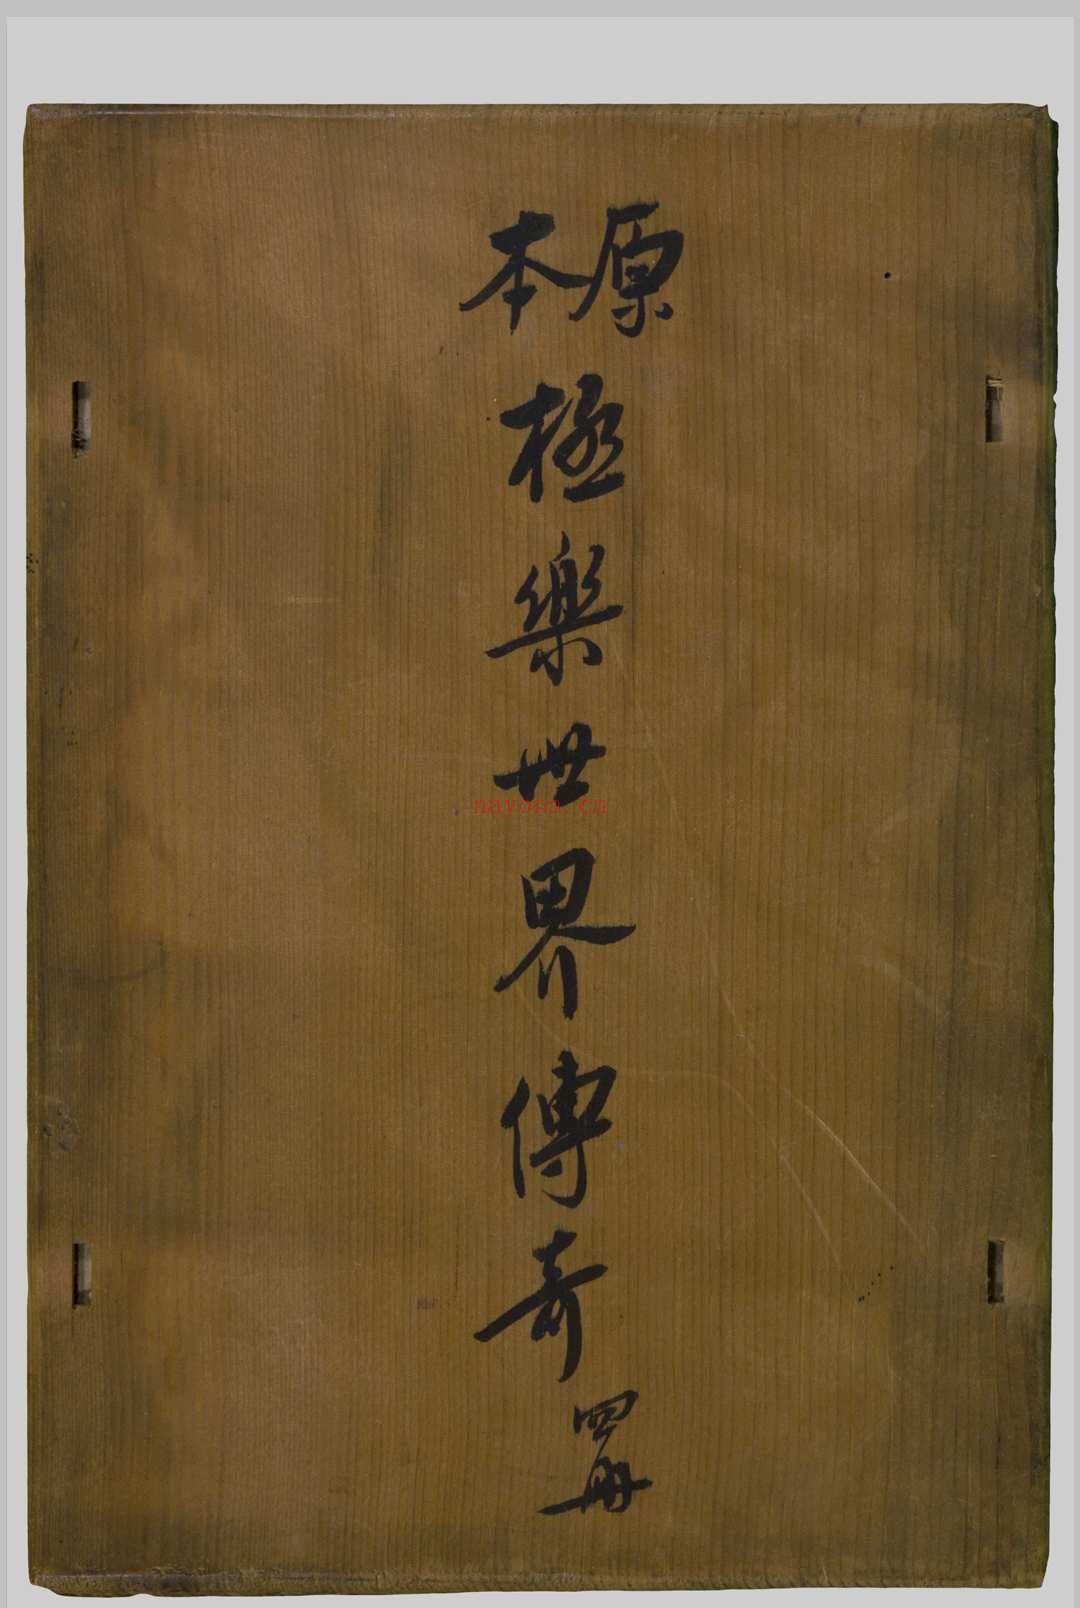 原本
極樂世界傳奇
四冊
nayona.cn